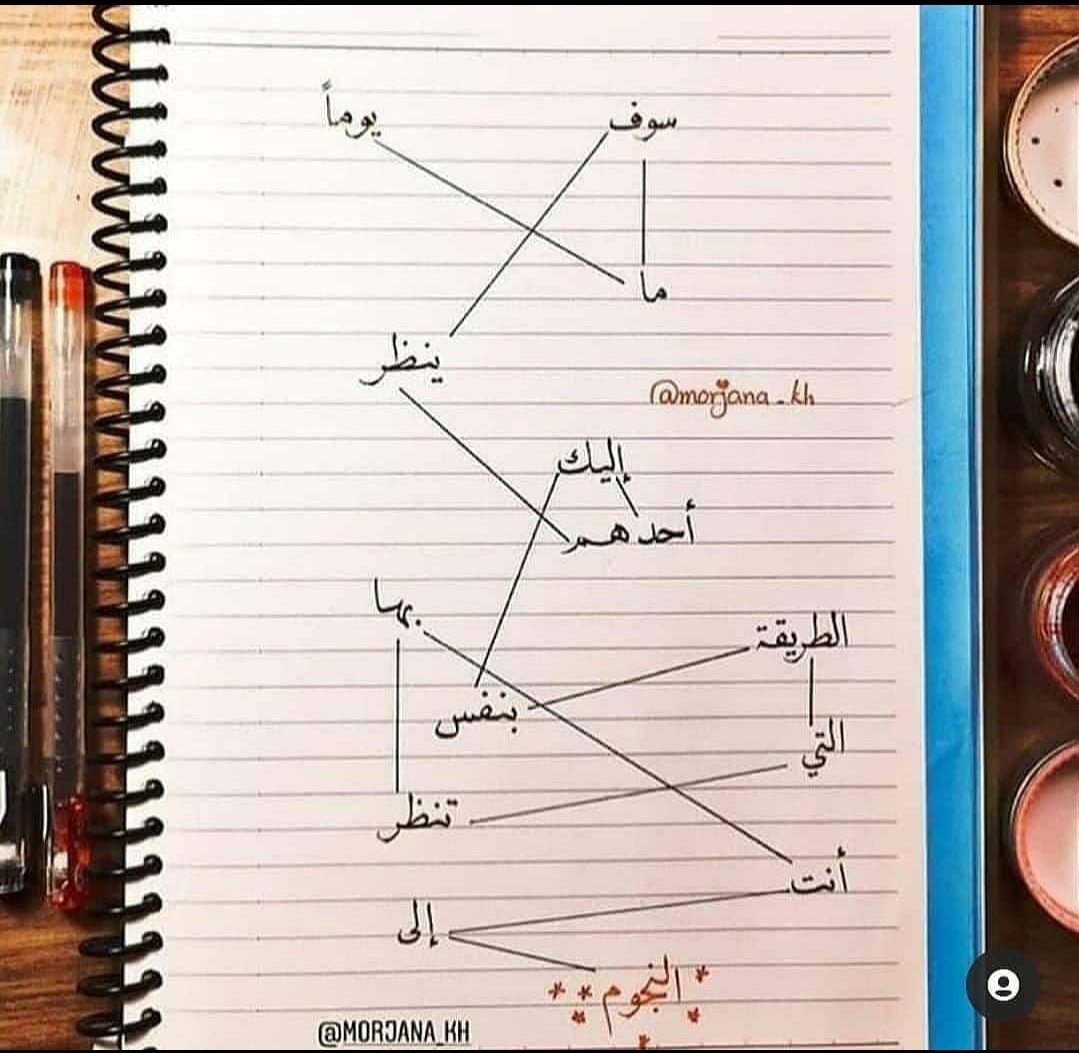 سوف يوماً
ما
ينظر
@morjana_kh
إليك
أحدهم
بها
الطريقة
بنفس
التي
تنظر
أنت
إلى
النجوم
@MORJANA_KH